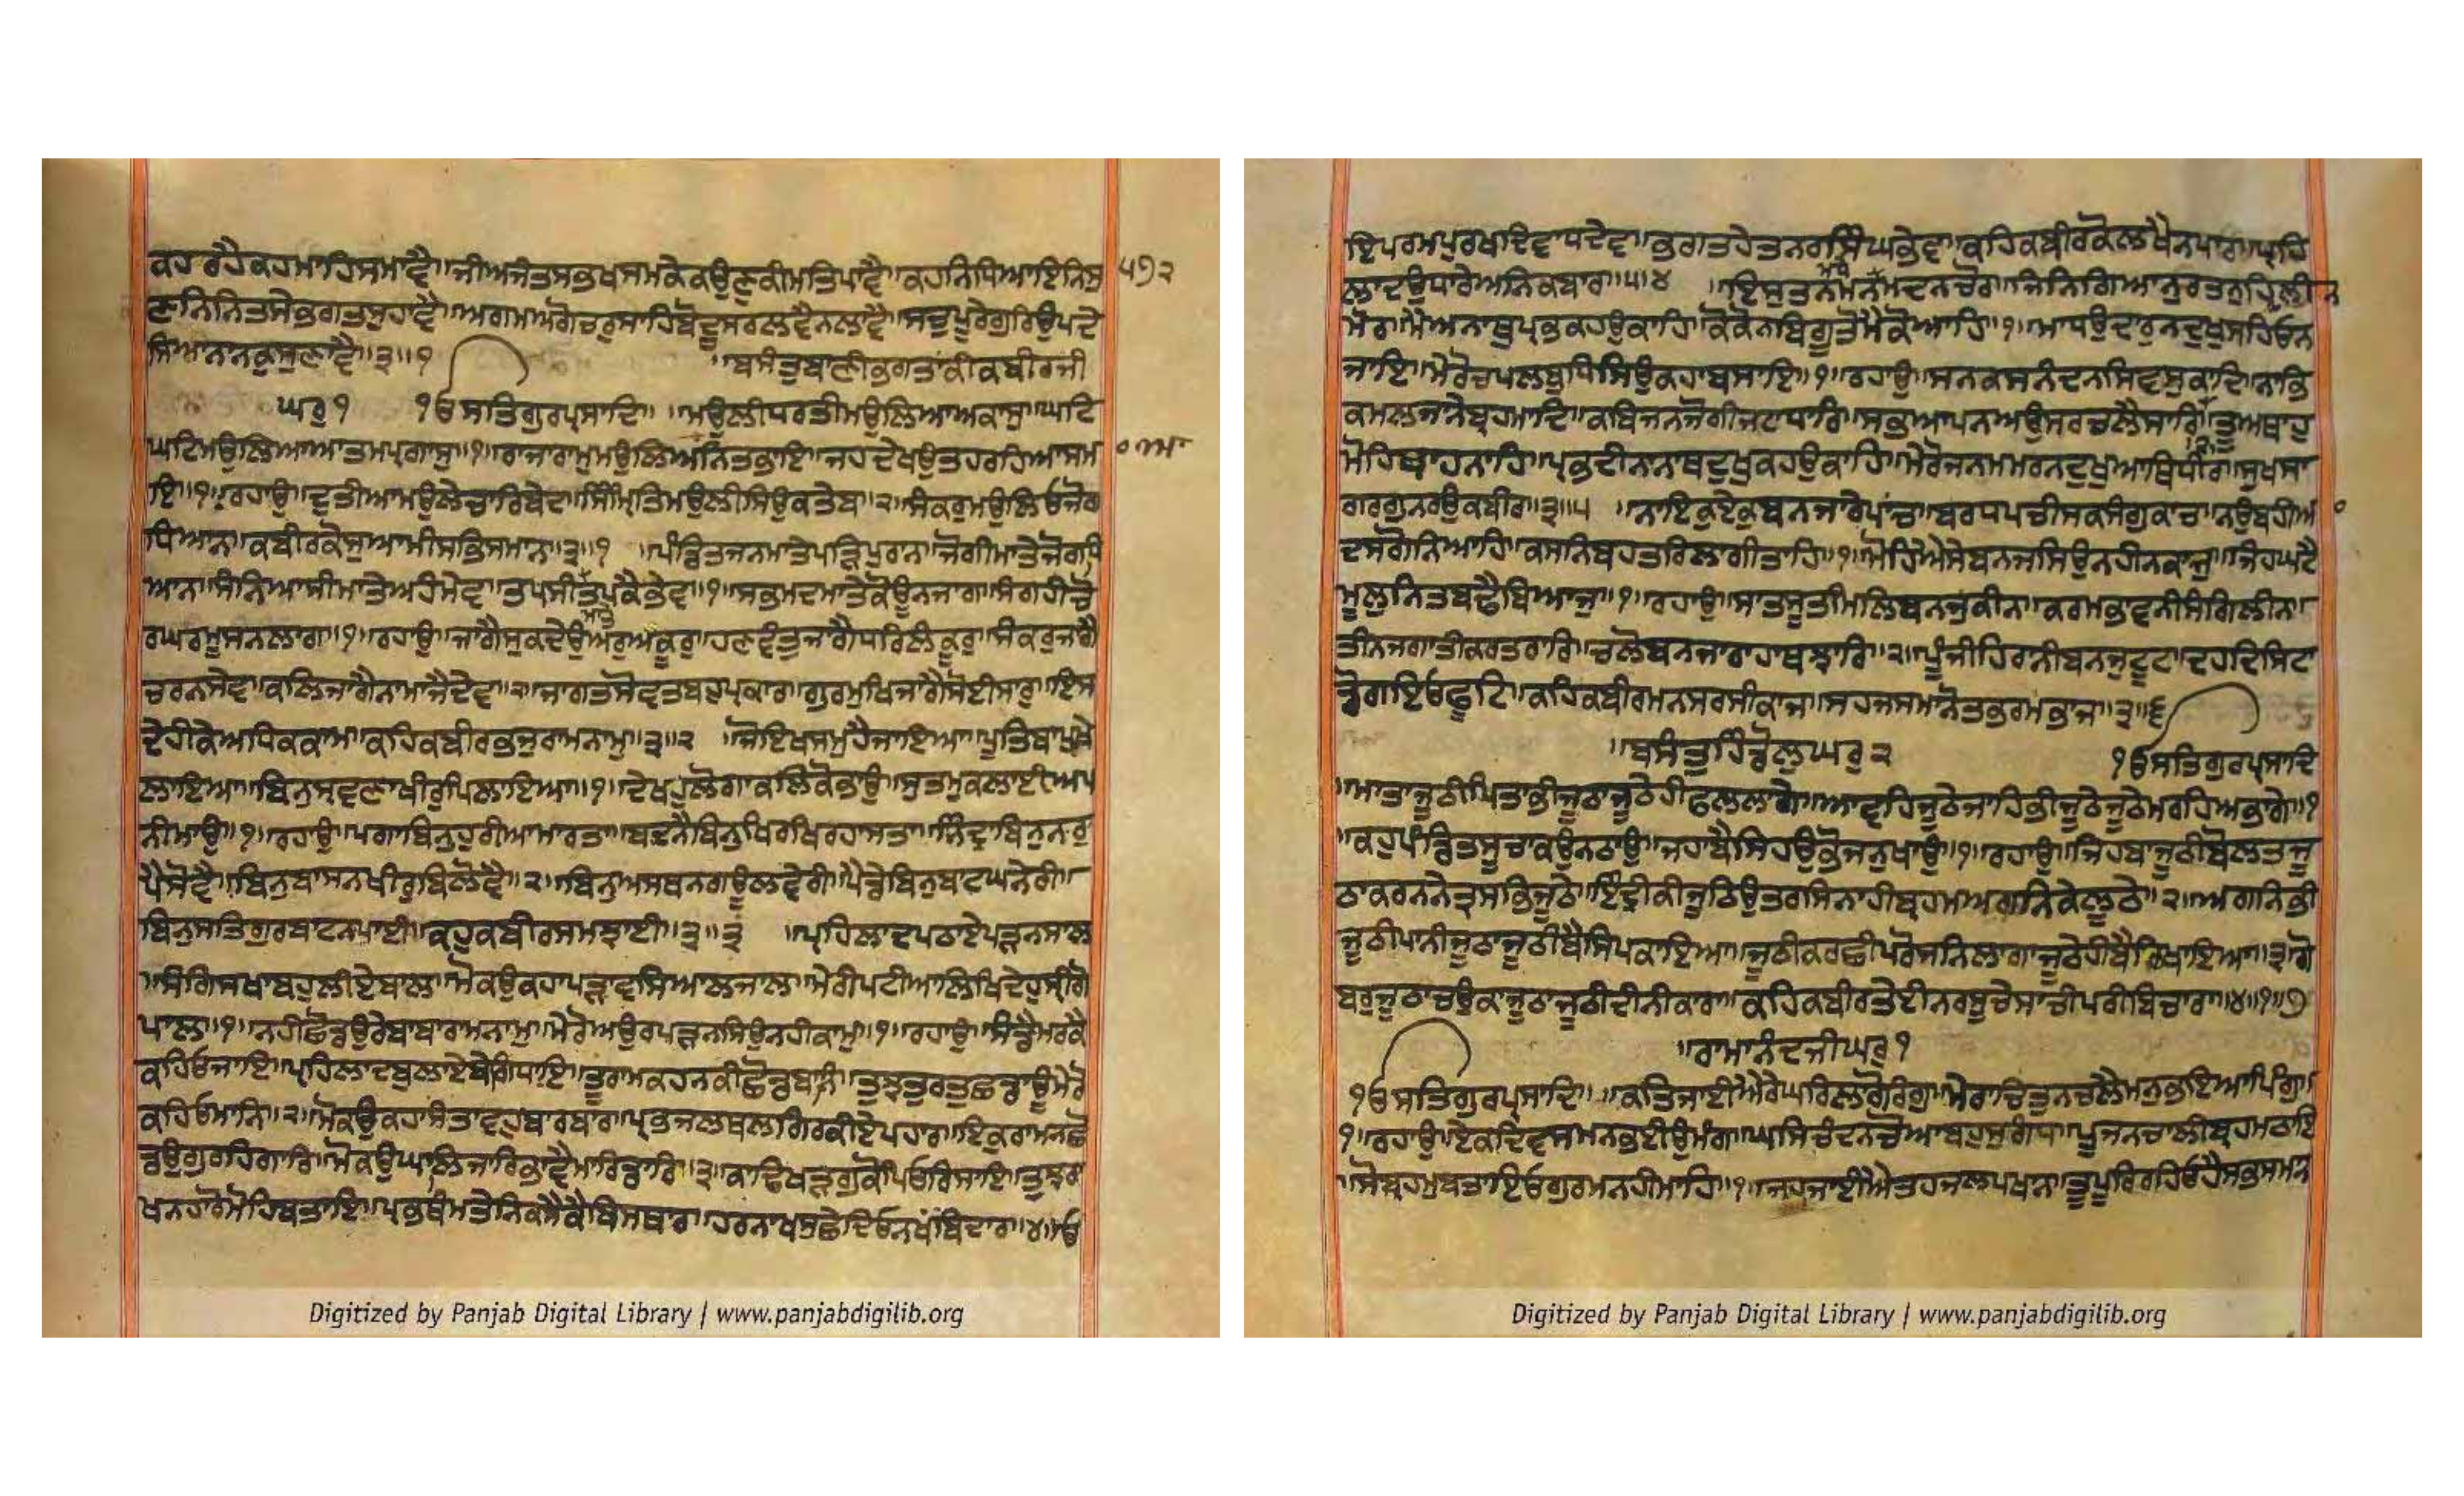 ਕਹ ਰਹੈਕਹਮਾਹਿਸਮਾਵੈ॥ਜੀਅਜੰਤਸਭਖਸਮਕੇਕਉਣੁਕੀਮਤਿਪਾਵੈ॥ਕਹਨਿਧਿਆਇਨਿਸੁ ੫੭੨
ਣਨਿਨਿਤਸੇਭਗਤਸੁਹਾਵੈ॥ਅਗਮਅਗੋਚਰੁਸਾਹਿਬੋਦੂਸਰਲਵੈਨਲਾਵੈ॥ਸਚੁਪੂਰੇਗੁਰਿਉਪਦੇ
ਸਿਆਨਾਨਕੁਸੁਣਾਵੈ॥੩॥੧ ॥ਬਸੰਤੁਬਾਣੀਭਗਤਾਕੀਕਬੀਰਜੀ
ਘਰੁ੧ ੧ੳਸਤਿਗੁਰਪ੍ਰਸਾਦਿ॥ ॥ਮਉਲੀਧਰਤੀਮਉਲਿਆਅਕਾਸੁ॥ਘਟਿ
ਘਟਿਮਉਲਿਆਆਤਮਪ੍ਰਗਾਸੁ॥੧॥ਰਾਜਾਰਾਮੁਮਉਲਿਆਅਨਿਤਭਾਇ॥ਜਹਦੇਖਉਤਹਰਹਿਆਸਮਾ
ਇ॥੧॥ਰਹਾਉ॥ਦੁਤੀਆਮਉਲੇਚਾਰਿਬੇਦਾ॥ਸਿੰਮ੍ਰਿਤਿਮਉਲੀਸਿਉਕਤੇਬਾ॥੨॥ਸੰਕਰੁਮਉਲਿਓਜੋਗ
ਧਿਆਨ॥ਕਬੀਰਕੋਸੁਆਮੀਸਭਿਸਮਾਨ॥੩॥੧ ॥ਪੰਡਿਤਜਨਮਾਤੇਪੜ੍ਹਿਪੁਰਾਨ॥ਜੋਗੀਮਾਤੇਜੋਗਧਿ
ਆਨ॥ਸੰਨਿਆਸੀਮਾਤੇਅਹੰਮੇਵ॥ਤਪਸੀਤਪਕੈਭੇਵ॥੧॥ਸਭਮਦਮਾਤੇਕੋਊਨਜਾਗ॥ਸੰਗਹੀਚੋ
ਰਘਰਮੁਸਨਲਾਗ॥੧॥ਰਹਾਉ॥ਜਾਗੈਸੁਕਦੇਉਅਰੁਅਕੂਰੁ॥ਹਣਵੰਤੁਜਾਗੈਧਰਿਲੰਕੂਰੁ॥ਸੰਕਰੁਜਾਗੈ
ਚਰਨਸੇਵ॥ਕਲਿਜਾਗੈਨਾਮਾਜੈਦੇਵ॥੨॥ਜਾਗਤਸੋਵਤਬਹੁਪ੍ਰਕਾਰ॥ਗੁਰਮੁਖਿਜਾਗੈਸੋਈਸਾਰੁ॥ਇਸ
ਦੇਹੀਕੇਅਧਿਕਕਾਮ॥ਕਹਿਕਬੀਰਭਜੁਰਾਮਨਾਮੁ॥੩॥੨ ॥ਜੋਇਖਸਮੁਹੈਜਾਇਆ॥ਪੂਤਿਬਾਪੁਖੇ
ਲਾਇਆ॥ਬਿਨੁਸ੍ਰਵਣਾਖੀਰੁਪਿਲਾਇਆ॥੧॥ਦੇਖਹੁਲੋਗਾਕਲਿਕੋਭਾਉ॥ਸੁਤਮੁਕਲਾਈਅਪ
ਨੀਮਾਉ॥੧॥ਰਹਾਉ॥ਪਗਾਬਿਨੁਹੁਰੀਆਮਾਰਤਾ॥ਬਦਨੈਬਿਨੁਖਿਰਖਿਰਹਾਸਤਾ॥ਨਿੰਦ੍ਰਾਬਿਨੁਨਰੁ
ਪੈਸੋਵੈ॥ਬਿਨੁਬਾਸਨਖੀਰੁਬਿਲੋਵੈ॥੨॥ਬਿਨੁਅਸਥਨਗਊਲਵੇਰੀ॥ਪੈਡੇਬਿਨੁਬਾਟਘਨੇਰੀ॥
ਬਿਨੁਸਤਿਗੁਰਬਾਟਨਪਾਈ॥ਕਹੁਕਬੀਰਸਮਝਾਈ॥੩॥੩ ॥ਪ੍ਰਹਿਲਾਦਪਠਾਏਪੜਨਸਾਲ
॥ਸੰਗਿਸਖਾਬਹੁਲੀਏਬਾਲ॥ਮੋਕਉਕਹਾਪੜ੍ਹਾਵਸਿਆਲਜਾਲ॥ਮੇਰੀਪਟੀਆਲਿਖਿਦੇਹੁਸ੍ਰੀਗੋ
ਪਾਲ॥੧॥ਨਹੀਛੋਡਉਰੇਬਾਬਾਰਾਮਨਾਮੁ॥ਮੇਰੋਅਉਰਪੜ੍ਹਨਸਿਉਨਹੀਕਾਮੁ॥੧॥ਰਹਾਉ॥ਸੰਡੈਮਰਕੈ
ਕਹਿਓਜਾਇ॥ਪ੍ਰਹਿਲਾਦਬੁਲਾਏਬੇਗਿਧਾਇ॥ਤੂਰਾਮਕਹਨਕੀਛੋਡੁਬਾਨਿ॥ਤੁਝੁਤੁਰਤੁਛਡਾਊਮੇਰੋ
ਕਹਿਓਮਾਨਿ॥੨॥ਮੋਕਉਕਹਾਸਤਾਵਹੁਬਾਰਬਾਰ॥ਪ੍ਰਭਜਲਥਲਗਿਰਕੀਏਪਹਾਰ॥ਇਕੁਰਾਮਨਛੋ
ਡਉਗੁਰਹਿਗਾਰਿ॥ਮੋਕਉਘਾਲਿਜਾਰਿਭਾਵੈਮਾਰਿਡਾਰਿ॥੩॥ਕਾਢਿਖੜਗੁਕੋਪਿਓਰਿਸਾਇ॥ਤੁਝਰਾ
ਖਨਹਾਰੋਮੋਹਿਬਤਾਇ॥ਪ੍ਰਭਥੰਮਤੇਨਿਕਸੈਕੈਬਿਸਥਾਰ॥ਹਰਨਾਖਸੁਛੇਦਿਓਨਖਬਿਦਾਰ॥੪॥ਓ
ਇਪਰਮਪੁਰਖਦੇਵਾਧਦੇਵ॥ਭਗਤਹੇਤਨਰਸਿੰਘਭੇਵ॥ਕਹਿਕਬੀਰਕੋਲਖੈਨਪਾਰ॥ਪ੍ਰਹਿ
ਲਾਦਉਧਾਰੇਅਨਿਕਬਾਰ॥੫॥੪ ॥ਇਸੁਤਨਮਨਮਧੇਮਦਨਚੋਰ॥ਜਿਨਿਗਿਆਨੁਰਤਨੁਹਿਰਿਲੀਨ
ਮੋਰ॥ਮੈਅਨਾਥੁਪ੍ਰਭਕਹਉਕਾਹਿ॥ਕੋਕੋਨਬਿਗੂਤੋਮੈਕੋਆਹਿ॥੧॥ਮਾਧਉਦਾਰੁਨਦੁਖੁਸਹਿਓਨ
ਜਾਇ॥ਮੇਰੋਚਪਲਬੁਧਿਸਿਉਕਹਾਬਸਾਇ॥੧॥ਰਹਾਉ॥ਸਨਕਸਨੰਦਨਸਿਵਸੁਕਾਦਿ॥ਨਾਭਿ
ਕਮਲਜਨੇਬ੍ਰਹਮਾਦਿ॥ਕਬਿਜਨਜੋਗੀਜਟਾਧਾਰਿ॥ਸਭਆਪਨਅਉਸਰਚਲੈਸਾਰਿ॥ਤੂਅਥਾਹੁ
ਮੋਹਿਥਾਹਨਾਹਿ॥ਪ੍ਰਭਦੀਨਾਨਾਥਦੁਖੁਕਹਉਕਾਹਿ॥ਮੇਰੋਜਨਮਮਰਨਦੁਖੁਆਥਿਧੀਰ॥ਸੁਖਸਾ
ਗਰਗੁਨਰਉਕਬੀਰ॥੩॥੫ ॥ਨਾਇਕੁਏਕੁਬਨਜਾਰੇਪਾਂਚ॥ਬਰਧਪਚੀਸਕਸੰਗੁਕਾਚ॥ਨਉਬਹੀਆਂ
ਦਸਗੋਨਿਆਹਿ॥ਕਸਨਿਬਹਤਰਿਲਾਗੀਤਾਹਿ॥੧॥ਮੋਹਿਐਸੇਬਨਜਸਿਉਨਹੀਨਕਾਜੁ॥ਜਿਹਘਟੈ
ਮੂਲੁਨਿਤਬਢੈਬਿਆਜੁ॥੧॥ਰਹਾਉ॥ਸਾਤਸੂਤੀਮਲਿਬਨਜੁਕੀਨ॥ਕਰਮਭਾਵਨੀਸੰਗਿਲੀਨ॥
ਤੀਨਜਗਾਤੀਕਰਤਰਾਰਿ॥ਚਲੋਬਨਜਾਰਾਹਾਥਝਾਰਿ॥੨॥ਪੂੰਜੀਹਿਰਾਨੀਬਨਜੁਟੂਟ॥ਦਹਦਿਸਿਟਾਂ
ਡੋਗਇਓਛੂਟਿ॥ਕਹਿਕਬੀਰਮਨਸਰਸੀਕਾਜ॥ਸਹਜਸਮਾਨੋਤਭਰਮਭਾਜ॥੩॥੬
॥ਬਸੰਤੁਹਿੰਡੋਲੁਘਰੁ੨ ੧ੳਸਤਿਗੁਰਪ੍ਰਸਾਦਿ
॥ਮਾਤਾਜੂਠੀਪਿਤਾਭੀਜੂਠਾਜੂਠੇਹੀਫਲਲਾਗੇ॥ਆਵਹਿਜੂਠੇਜਾਹਿਭੀਜੂਠੇਜੂਠੇਮਰਹਿਅਭਾਗੇ॥੧
॥ਕਹੁਪੰਡਿਤਸੂਚਾਕਉਨਠਾਉ॥ਜਹਾਬੈਸਿਹਉਭੋਜਨੁਖਾਉ॥੧॥ਰਹਾਉ॥ਜਿਹਬਾਜੂਠੀਬੋਲਤਜੂ
ਠਾਕਰਨਨੇਤ੍ਰਸਭਿਜੂਠੇ॥ਇੰਦ੍ਰੀਕੀਜੂਠਿਉਤਰਸਿਨਾਹੀਬ੍ਰਹਮਅਗਨਿਕੇਲੂਠੇ॥੨॥ਅਗਨਿਭੀ
ਜੂਠੀਪਾਨੀਜੂਠਾਜੂਠੀਬੈਸਿਪਕਾਇਆ॥ਜੂਠੀਕਰਛੀਪਰੋਸਨਿਲਾਗਾਜੂਠੇਹੀਬੈਠਿਖਾਇਆ॥੩॥ਗੋ
ਬਰੁਜੂਠਾਚਉਕਾਜੂਠਾਜੂਠੀਦੀਨੀਕਾਰਾ॥ਕਹਿਕਬੀਰਤੇਈਨਰਸੂਚੇਸਾਚੀਪਰੀਬਿਚਾਰਾ॥੪॥੧॥੭
॥ਰਾਮਾਨੰਦਜੀਘਰੁ੧
੧ੳਸਤਿਗੁਰਪ੍ਰਸਾਦਿ॥ ॥ਕਤਜਾਈਐਰੇਘਰਿਲਾਗੋਰੰਗੁ॥ਮੇਰਾਚਿਤੁਨਚਲੈਮਨੁਭਇਆਪਿੰਗੁ॥
੧॥ਰਹਾਉ॥ਏਕਦਿਵਸਮਨਭਈਉਮੰਗ॥ਘਸਿਚੰਦਨਚੋਆਬਹੁਸੁਗੰਧ॥ਪੂਜਨਚਾਲੀਬ੍ਰਹਮਠਾਇ
॥ਸੋਬ੍ਰਹਮੁਬਤਾਇਓਗੁਰਮਨਹੀਮਾਹਿ॥੧॥ਜਹਜਾਈਐਤਹਜਲਪਖਾਨ॥ਤੂਪੂਰਿਰਹਿਓਹੈਸਭਸਮਾਨ
Digitized by Panjab Digital Library | www.panjabdigilib.org
Digitized by Panjab Digital Library | www.panjabdigilib.org